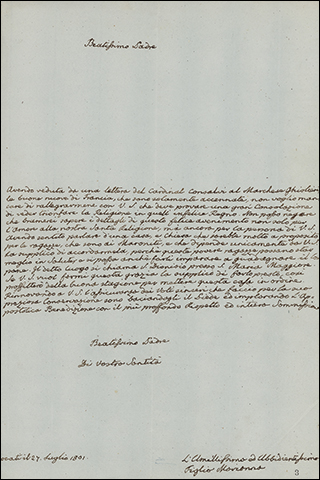 Beatissimo Padre
Avendo veduta da una lettera del Cardinal Consalvi al Marchese Ghislieri
le buone nuove di Francia, che sono solamente accennate, non voglio man-
care di rallegrarmene con V. S. che deve provare una gran Consolazione
di veder trionfare la Religione in quell' infelice Regno. Non posso negare
che bramerei sapere i dettagli di questo felice avvenimento non solo per
l'amor alla nostra Santa Religione, mà ancor per la persona di V. S.
Avendo sentito parlare d'una casa e Chiesa che sarebbe molto a proposito
per le ragazze, che sono ai Maroniti, e che dipende unicamente da V. S.
la supplico di accordarmela, perchè queste povere ragazze possano star
meglio in salute, e possano anche farle imparare a guadagnare il lo
pane. Il detto luogo si chiama S. presso S. Maria Maggiore
Se V. S. vuol farmi questa grazia la supplico di farlo presto, così
profitterò della buona stagione per mettere questa casa in ordine
Rinnovando a V. S. l'assicuranza dei Voti sinceri che faccio per la sua
preziosa Conservazione sono baciandogli il Piede ed implorando l'Ap-
postolica Benedizione con il più proffondo rispetto ed intiera Sommissione
Beatissimo Padre
Di Vostra Santità
27. Luglio 1801.
L'Umilissima ed Ubbidientissima
Figlia Marianna
3